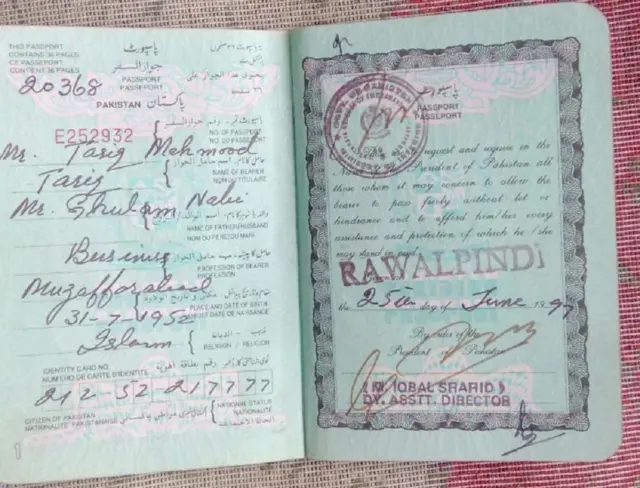 THIS PASSPORT
CONTAINS 36 PAGES
CE PASSEPORT
CONTIENT 36 PAGES
پاسپورٹ
جواز السفر
20368
PASSPORT
PASSEPORT
PAKISTAN پاکستان
E252932
NO. OF PASSPORT
NO. DU PASSEPORT
Mr. Tariq Mehmood
Tariq
NAME OF BEARER
NOM DU TITULAIRE
Mr. Ghulam Nabi
NAME OF FATHER/HUSBAND
NOM DU PERE/DU MARI
Business
PROFESSION OF BEARER
PROFESSION
Muzaffarabad
31-7-1952
PLACE AND DATE OF BIRTH
LIEU ET DATE DE NAISSANCE
Islam
RELIGION / RELIGION
IDENTITY CARD NO.
NUMERO DE CARTE D'IDENTITE
212-52-217777
CITIZEN OF PAKISTAN
NATIONALITE PAKISTANAISE
NATIONAL STATUS
NATIONALITÉ
1
پاسپورٹ
PASSPORT
PASSEPORT
request and require in the
Name of the President of Pakistan all
those whom it may concern to allow the
bearer to pass freely without let or
hindrance and to afford him/her every
assistance and protection of which he/she
may stand in need.
RAWALPINDI
the 25th day of June 1997
By order of the
President of Pakistan
(M. IQBAL SHAHID)
DY. ASSTT. DIRECTOR